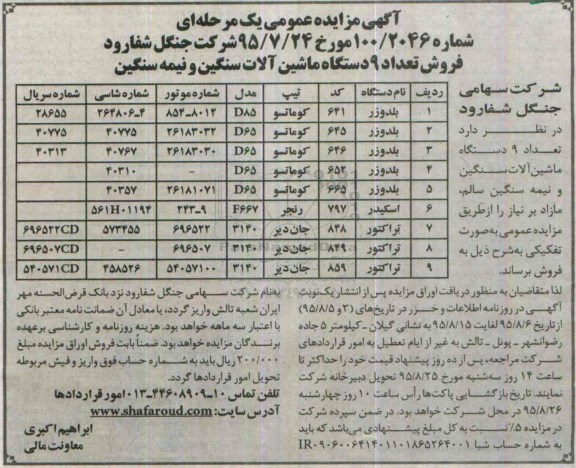 آگهی مزایده عمومی یک مرحله‌ای
شماره ۱۰۰/۲۰۴۶ مورخ ۹۵/۷/۲۴ شرکت جنگل شفارود
فروش تعداد ۹ دستگاه ماشین آلات سنگین و نیمه سنگین
شرکت سهامی
جنگل شفارود
در نظر دارد
تعداد ۹ دستگاه
ماشین‌آلات سنگین
و نیمه سنگین سالم،
مازاد بر نیاز را ازطریق
مزایده عمومی به‌صورت
تفکیکی به‌شرح ذیل به
فروش برساند.
ردیف نام دستگاه کد تیپ مدل شماره موتور شماره شاسی شماره سریال
۱ بلدوزر ۶۴۱ کوماتسو D۸۵ ۸۵۴-۸۰۱۲ ۲۶۴۸۰۶-۴ ۲۸۶۵۵
۲ بلدوزر ۶۴۵ کوماتسو D۶۵ ۲۶۱۸۳۰۳۲ ۴۰۷۷۵ ۴۰۷۷۵
۳ بلدوزر ۶۴۶ کوماتسو D۶۵ ۲۶۱۸۳۰۳۰ ۴۰۷۶۷ ۴۰۳۱۳
۴ بلدوزر ۶۵۲ کوماتسو D۶۵ - ۴۰۳۱۰
۵ بلدوزر ۶۶۵ کوماتسو D۶۵ ۲۶۱۸۱۰۷۱ ۴۰۳۵۷
۶ اسکیدر ۷۹۷ رنجر F۶۶۷ ۲۴۳-۹ ۵۶۱H۰۱۱۹۴
۷ تراکتور ۸۴۸ جان‌دیر ۳۱۴۰ ۶۹۶۵۲۲ ۵۷۳۴۵۵ ۶۹۶۵۲۲CD
۸ تراکتور ۸۴۹ جان‌دیر ۳۱۴۰ ۶۹۶۵۰۷ - ۶۹۶۵۰۷CD
۹ تراکتور ۸۵۹ جان‌دیر ۳۱۴۰ ۵۴۰۵۷۱۰۰ ۴۵۸۵۲۶ ۵۴۰۵۷۱CD
لذا متقاضیان به منظور دریافت اوراق مزایده پس از انتشار یک‌نوبت
آگهی در روزنامه اطلاعات و خزر در تاریخ‌های (۳ و ۹۵/۸/۵)
ازتاریخ ۹۵/۸/۶ لغایت ۹۵/۸/۱۵ به نشانی گیلان - کیلومتر ۵ جاده
رضوانشهر - پونل - تالش به غیر از ایام تعطیل به امور قراردادهای
شرکت مراجعه، پس از ده روز پیشنهاد قیمت خود را حداکثر تا
ساعت ۱۴ روز سه‌شنبه مورخ ۹۵/۸/۲۵ تحویل دبیرخانه شرکت
نمایند. تاریخ بازگشایی پاکت‌ها رأس ساعت ۱۰ روز چهارشنبه
۹۵/۸/۲۶ در محل شرکت خواهد بود. در ضمن سپرده شرکت
در مزایده ۵٪ نسبت به کل مبلغ پیشنهادی می‌باشد که باید
به شماره حساب شبا IR۰۹۰۶۰۰۶۴۱۴۰۱۱۰۱۸۶۵۲۶۴۰۰۱
به‌نام شرکت سهامی جنگل شفارود نزد بانک قرض‌الحسنه مهر
ایران شعبه تالش واریز گردد، یا معادل آن ضمانت نامه معتبر بانکی
با اعتبار سه ماهه خواهد بود. هزینه روزنامه و کارشناسی برعهده
برندگان مزایده خواهد بود. ضمناً بابت فروش اوراق مزایده مبلغ
۲۰۰/۰۰۰ ریال باید به شماره حساب فوق واریز و فیش مربوطه
تحویل امور قراردادها گردد.
تلفن تماس ۱۰-۴۴۶۰۸۹۰۹-۰۱۳ امور قراردادها
آدرس سایت: www.shafaroud.com
ابراهیم اکبری
معاونت مالی